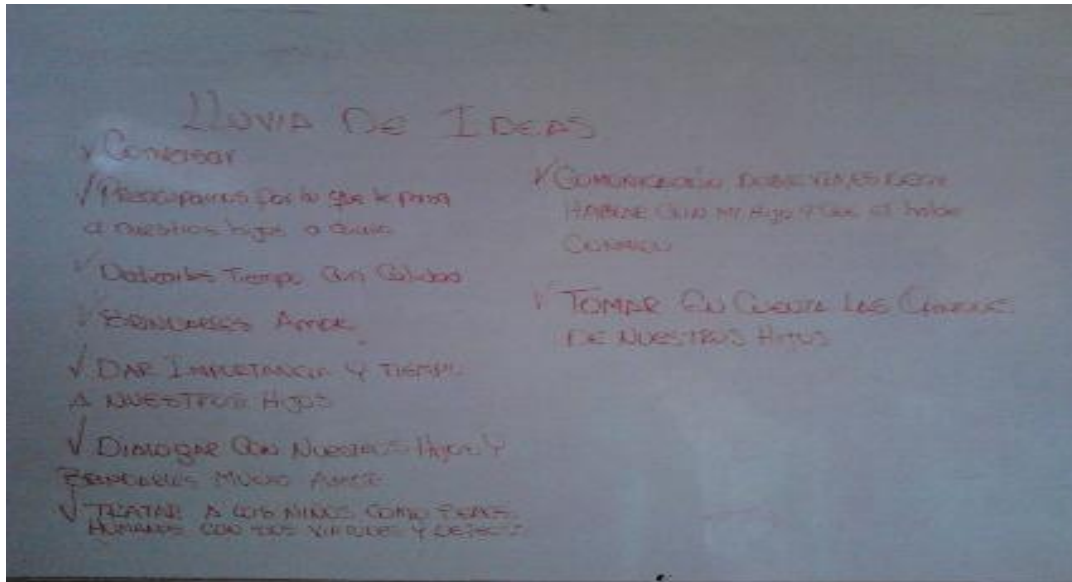 LLUVIA DE IDEAS
✓ Conversar
✓ Preocuparnos por lo que le pasa
a nuestros hijos a
✓ Dedicarles Tiempo Con Calidad
✓ BRINDARLES AMOR
✓ DAR IMPORTANCIA Y TIEMPO
A NUESTROS HIJOS
✓ DIALOGAR CON NUESTROS HIJOS Y
BRINDARLES MUCHO AMOR
✓ TRATAR A LOS NIÑOS COMO SERES
HUMANOS CON SUS VIRTUDES Y DEFECTOS
✓ COMUNICACIÓN DOBLE VIA ES DECIR
HABLAR CON MI HIJO Y QUE EL hable
CONMIGO
✓ TOMAR EN CUENTA LAS
DE NUESTROS HIJOS